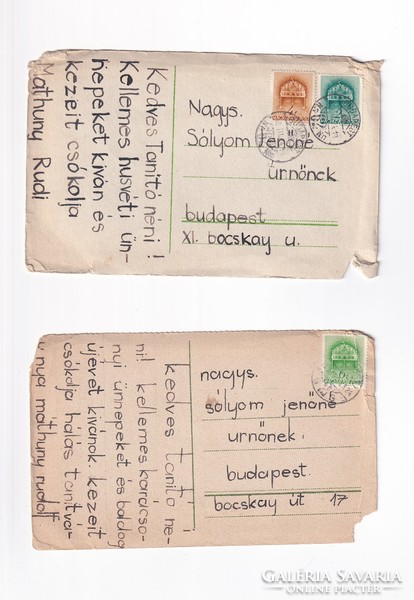 Kedves Tanító néni!
Kellemes husvéti ün-
nepeket kiván és
kezeit csókolja
Mathuny Rudi
Nagys.
Sólyom Jenőné
úrnőnek
budapest
XI. bocskay u.
kedves tanitó né-
ni! kellemes karácso-
nyi ünnepeket és boldog
újévet kivánok. kezeit
csókolja hálás tanitvá-
nya máthuny rudolf
nagys.
sólyom jenőné
úrnőnek.
budapest.
bocskay út 17
GALÉRIA SAVARIA
ONLINE PIACTÉR